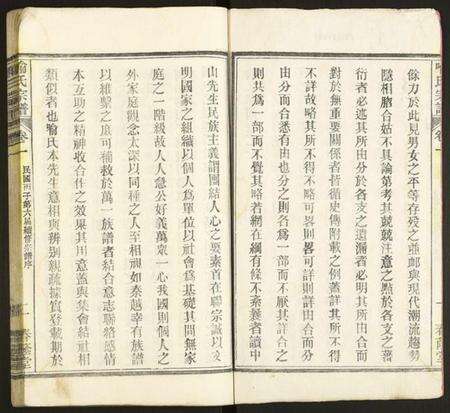 餘力於此見男女之平等存殁之並卹與現代潮流趨勢
隱相脗合姑不具論第考其兢兢注意之點於各支之蕃
衍者必述其所由分於各支之遺漏者必明其所由合而
對於無重要關係者皆循史傳附載之例蓋詳其所不得
不詳故略其所不得不略可畧則畧可詳則詳由合而分
由分而合悉有由也分之則各為一部而不厭其詳合之
則共為一部而不覺其略若網在綱有條不紊義者讀中
山先生民族主義謂團結人心之要素首在聯宗誠以文
明國家之組織以個人為單位以社會為基礎其間無家
庭之一階級故人人急公好義萬眾一心我國則個人之
外家庭觀念太深以同種之人至相視如秦越幸有族譜
以維繫之庶可補救於萬一族譜者結合意志聯絡感情
本互助之精神收合作之效果其用意蓋與集會結社相
類似者也喻氏本先生意相與辨別親疏據實登載期於
喻氏宗譜
卷
民國丙子第六屆續修宗譜序
一